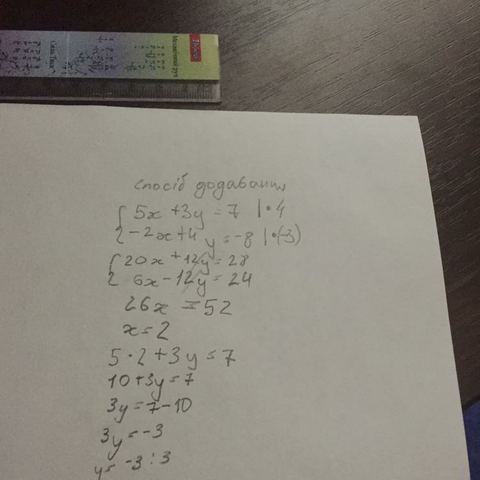 спосіб додавання
5x + 3y = 7 | • 4
-2x + 4y = -8 | • (-3)
20x + 12y = 28
6x - 12y = 24
26x = 52
x = 2
5 • 2 + 3y = 7
10 + 3y = 7
3y = 7 - 10
3y = -3
y = -3 : 3